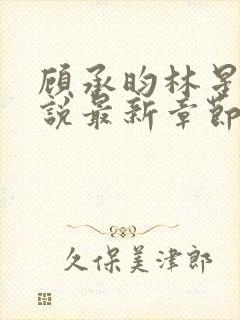 顾承昀林星
說最新章節
久保美津郎